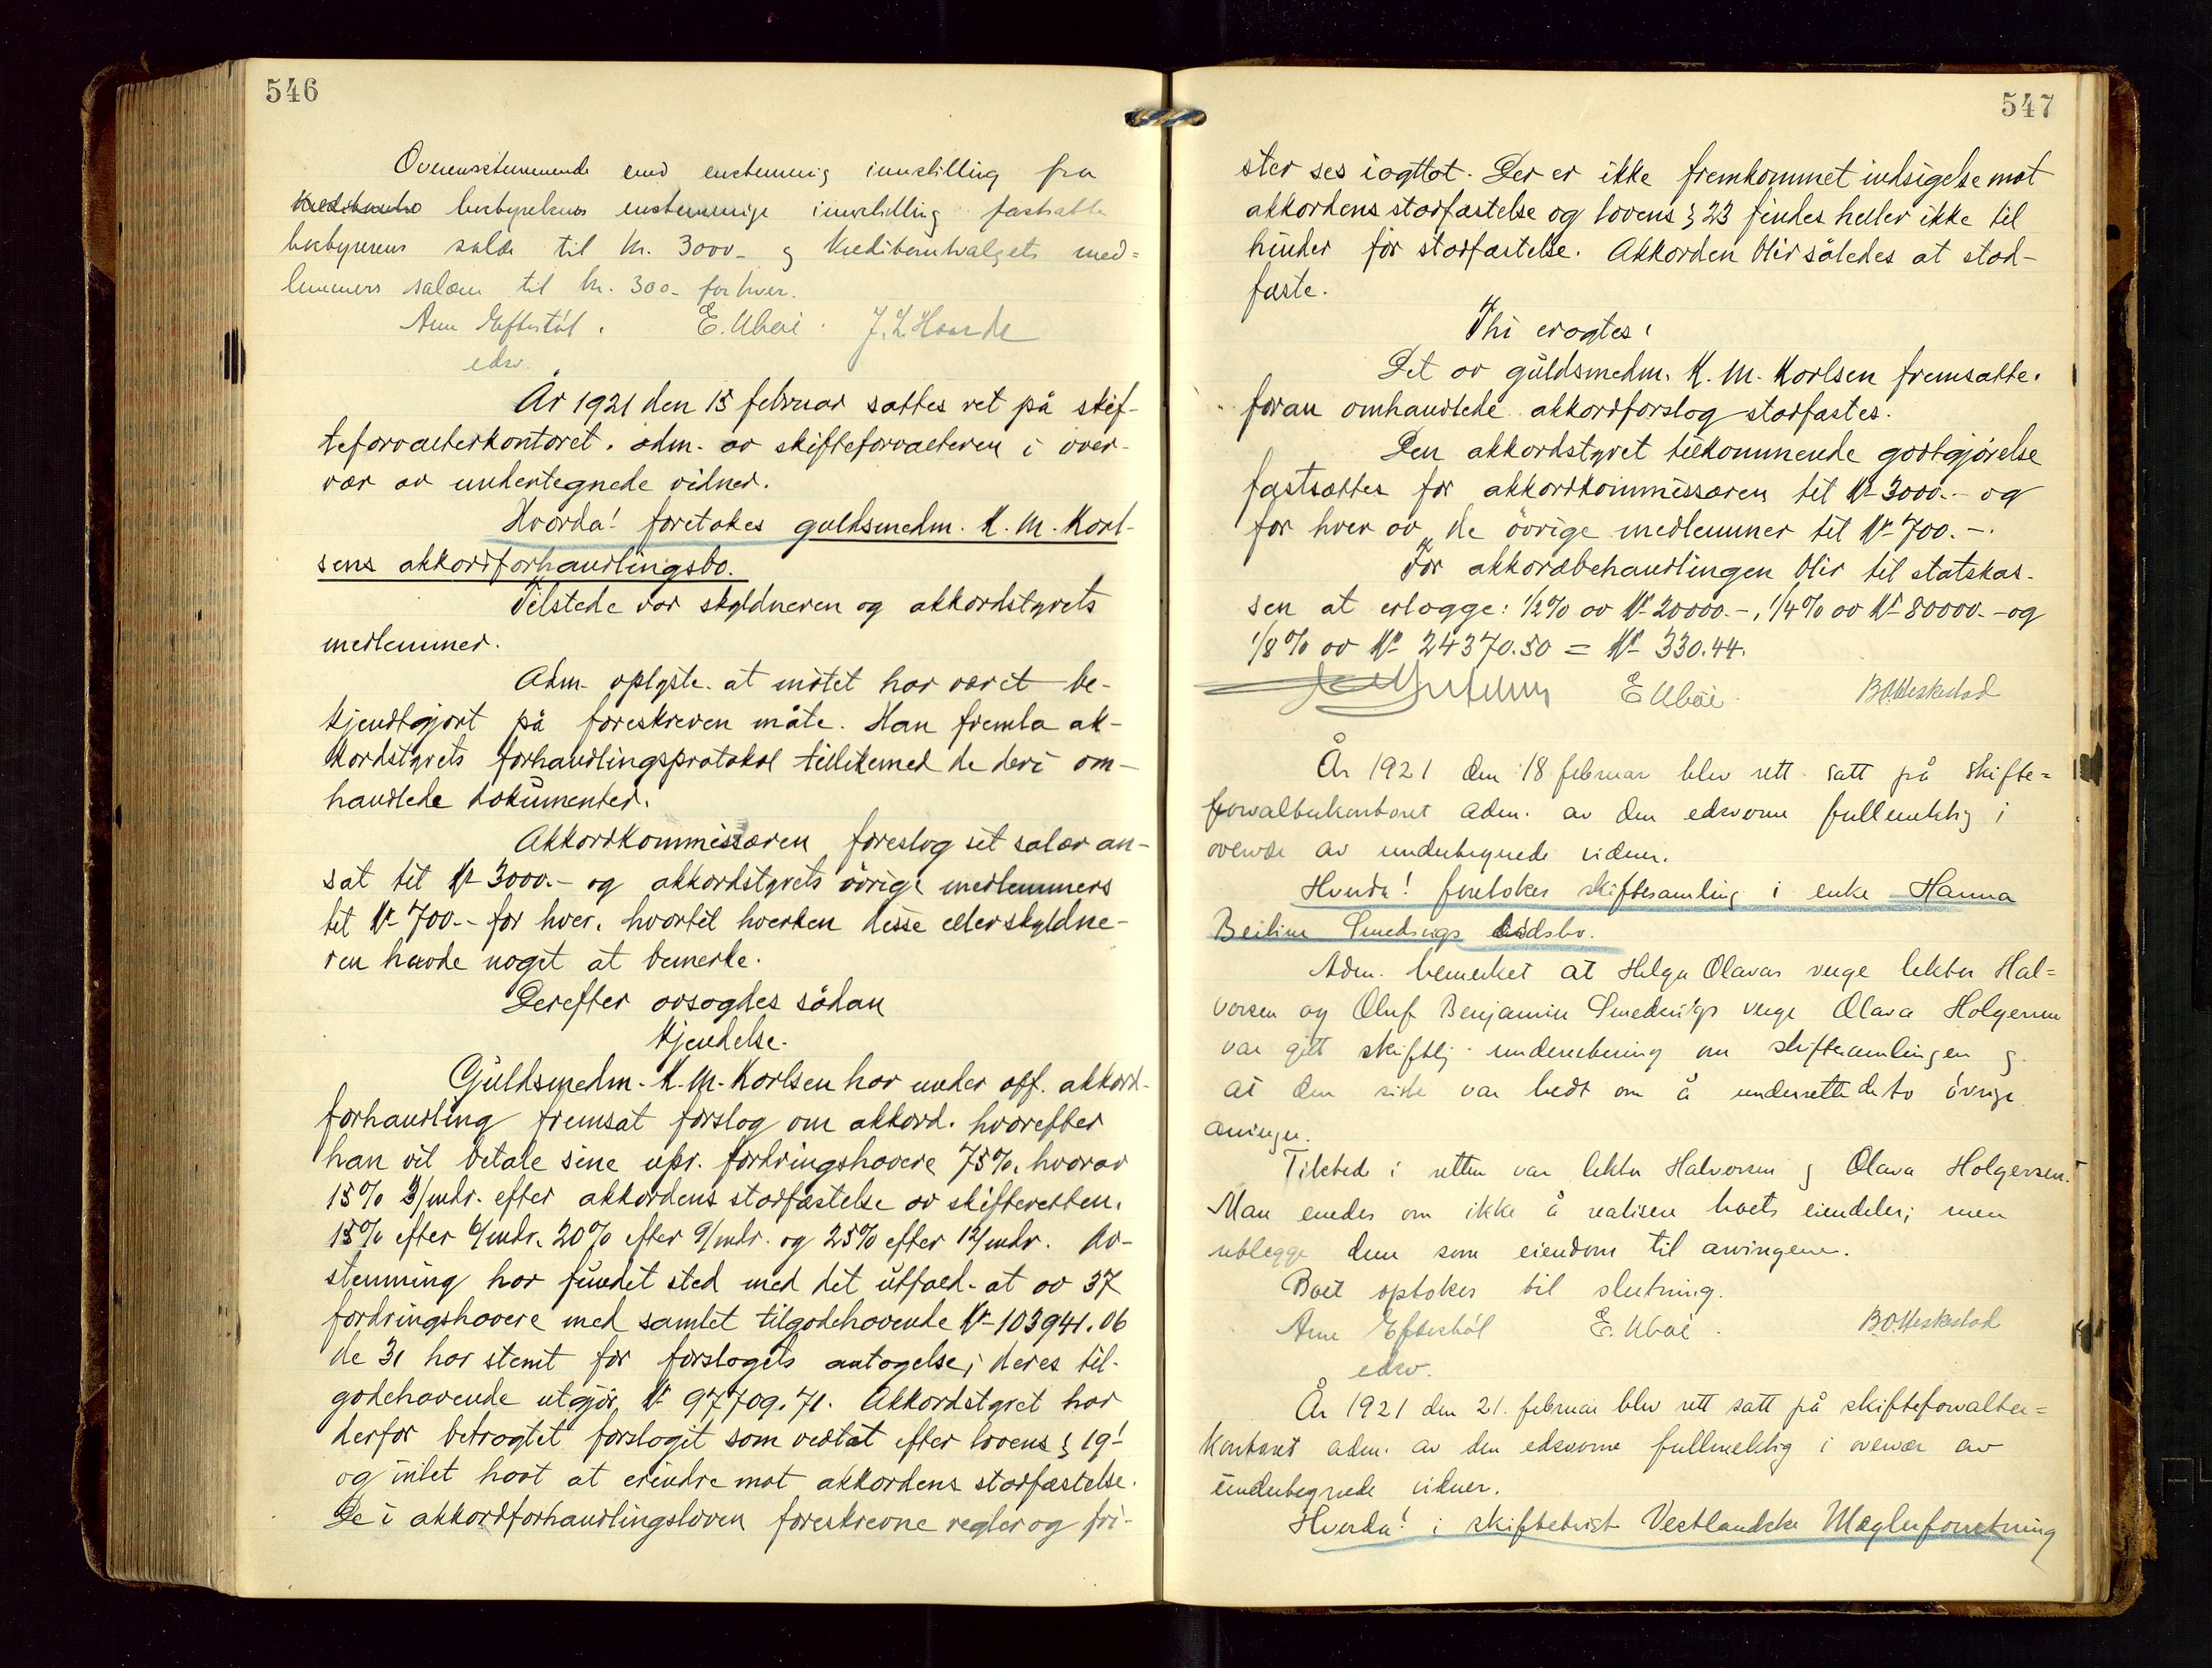 546
Overensstemmende med enstemmig innstilling fra
bobyrerens enstemmige innstilling fastsatte
bobyrerens salær til kr. 3000.- og kreditorutvalgets med=
lemmers salær til kr. 300.- for hver.
Arne Eftestøl. E. Ubøe. J. L. Haarde
edsv.
År 1921 den 15 februar sattes ret på skif-
teforvalterkontoret, adm. av skifteforvalteren i over-
vær av undertegnede vidner.
Hvorda! foretokes guldsmedm. K. M. Karl-
sens akkordforhandlingsbo.
Tilstede var skyldneren og akkordstyrets
medlemmer.
Adm. oplyste at møtet har været be-
kjendtgjort på foreskreven måte. Han fremla ak-
kordstyrets forhandlingsprotokol tillikemed de deri om-
handlede dokumenter.
Akkordkommissæren foreslog sit salær an-
sat til kr 3000.- og akkordstyrets övrige medlemmers
til kr 700.- for hver, hvortil hverken disse eller skyldne-
ren havde noget at bemerke.
Derefter avsagdes sådan
kjendelse.
Guldsmedm. K. M. Karlsen har under off. akkord-
forhandling fremsat forslag om akkord, hvorefter
han vil betale sine upr. fordringshavere 75%, hvorav
15% 3/mdr. efter akkordens stadfæstelse av skifteretten,
15% efter 6/mdr. 20% efter 9/mdr. og 25% efter 12/mdr. Av-
stemning har fundet sted med det utfald at av 37
fordringshavere med samlet tilgodehavende kr 103941.06
de 31 har stemt for forslagets antagelse; deres til-
godehavende utgjör kr 97709.71. Akkordstyret har
derfor betragtet forslaget som vedtat efter lovens § 19!
og intet havt at erindre mot akkordens stadfæstelse.
De i akkordforhandlingsloven foreskrevne regler og fri-
547
ster ses iagttat. Der er ikke fremkommet indsigelse mot
akkordens stadfæstelse og lovens § 23 findes heller ikke til
hinder for stadfæstelse. Akkorden blir således at stad-
fæste.
Thi eragtes:
Det av guldsmedm. K. M. Karlsen fremsatte,
foran omhandlede akkordforslag stadfæstes.
Den akkordstyret tilkommende godtgjørelse
fastsættes for akkordkommissæren til kr 3000.- og
for hver av de övrige medlemmer til kr 700.-.
For akkordbehandlingen blir til statskas-
sen at erlægge: 1/2% av kr 20000.-, 1/4% av kr 80000.- og
1/8% av kr 24370.50 = kr 330.44.
E Ubøe. B.O. Heskestad
År 1921 den 18 februar blev rett satt på skifte=
forvalterkontoret adm. av den edsvorne fullmektig i
overvær av undertegnede vidner.
Hvorda! foretokes skiftesamling i enke Hanna
Smedsvigs dödsbo.
Adm. bemerket at Helga Olavas verge lektor Hal=
vorsen og Oluf Benjamin Smedsvigs verge Olava Holgersen
var gitt skriftlig underretning om skiftesamlingen og
at den siste var bedt om å underrette de to övrige
arvinger.
Tilsted i retten var lektor Halvorsen og Olava Holgersen.
Man enedes om ikke å realisere boets eiendeler; men
utlegge dem som eiendom til arvingene.
Boet optokes til slutning.
Arne Eftestøl E. Ubøe. B.O. Heskestad
edsv.
År 1921 den 21. februar blev rett satt på skifteforvalter=
kontoret adm. av den edsvorne fullmektig i overvær av
undertegnede vidner.
Hvorda! i skiftetvist Vestlandske Mæglerforretning